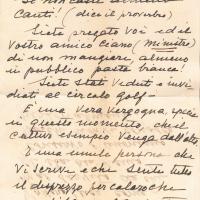 Canti. (dice il proverbio)
Siete pregato voi ed il
Vostro amico Ciano (Ministro)
di non mangiare, almeno
in pubblico pasta bianca!
Siete stati veduti e invi-
diati al circolo golf-
È una vera vergogna, specie
in questo momento, che il
cattivo esempio venga dall'alto.
È una umile persona che
Vi scrive e che sente tutto
il disprezzo per coloro che